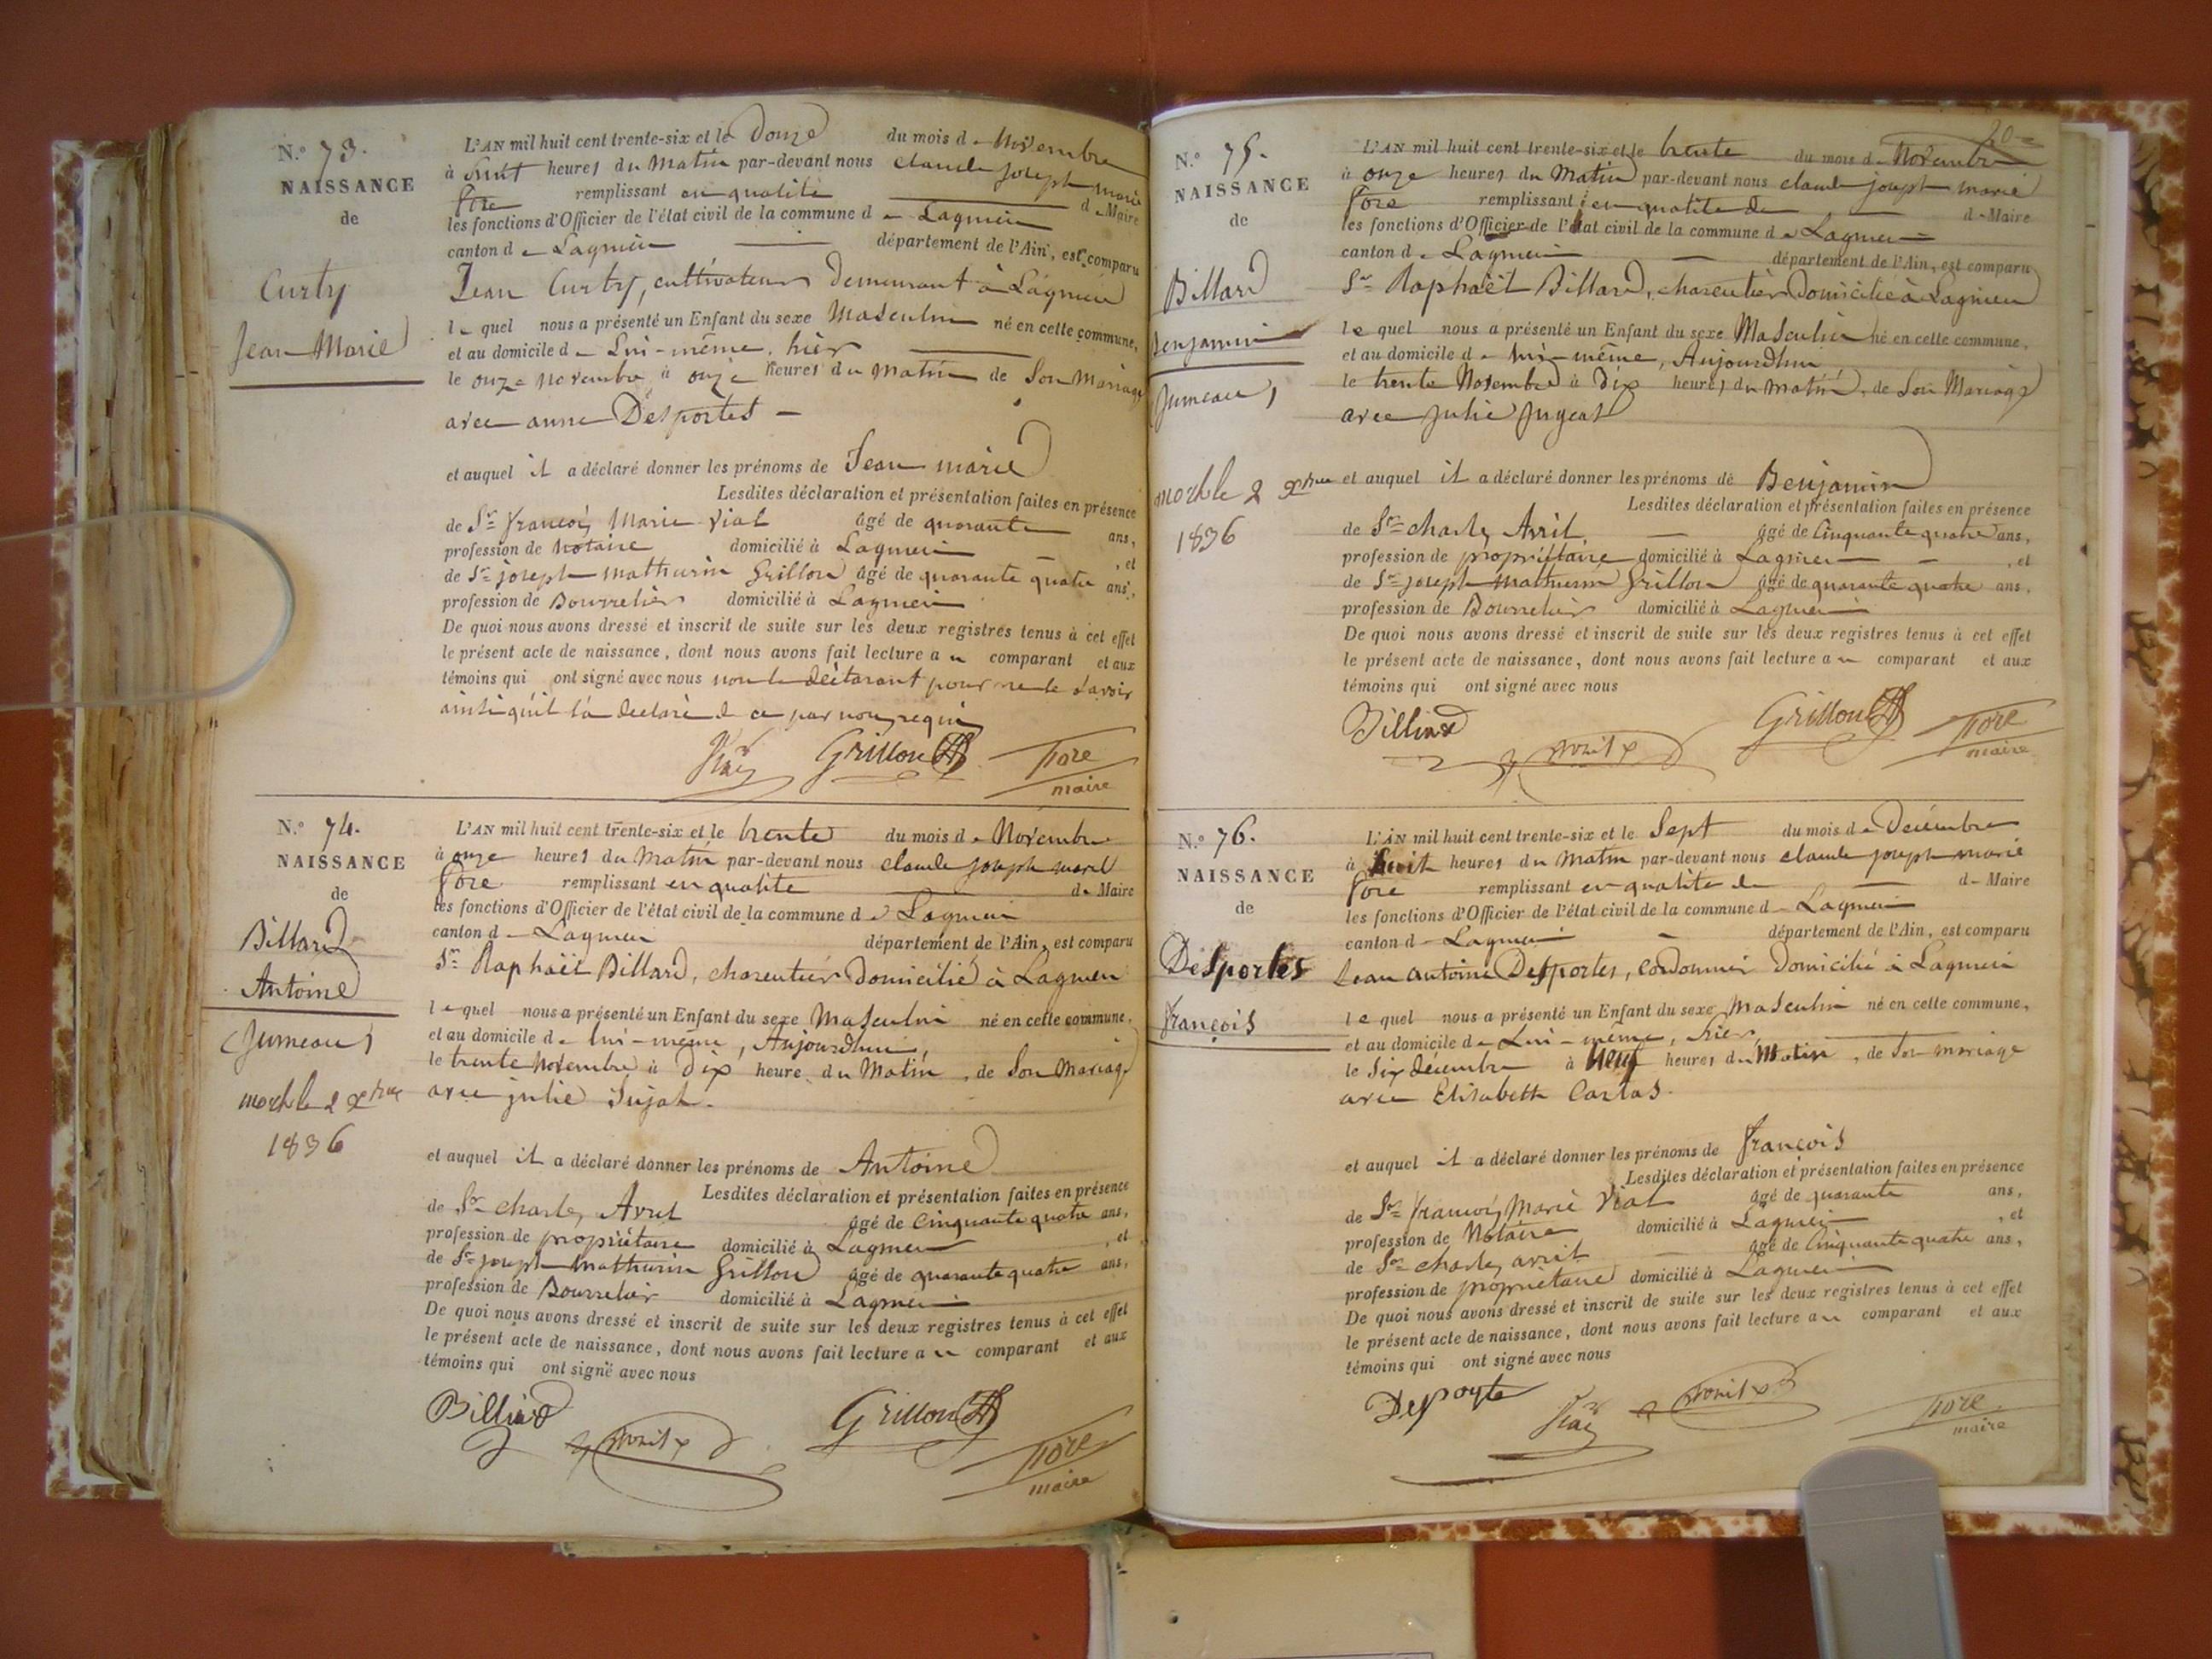 N.° 73.
NAISSANCE
de
Curty
Jean Marie
L'AN mil huit cent trente-six et le Douze du mois de Novembre
à huit heures du Matin par-devant nous claude joseph marie
fore remplissant en qualité de Maire
les fonctions d'Officier de l'état civil de la commune de Lagnieu
canton de Lagnieu département de l'Ain, est comparu
Jean Curty, cultivateur Demeurant à Lagnieu
lequel nous a présenté un Enfant du sexe Masculin né en cette commune,
et au domicile de Lui-même, hier
le onze novembre à onze heures du matin de Son Mariage
avec anne Desportes
et auquel il a déclaré donner les prénoms de Jean marie
Lesdites déclaration et présentation faites en présence
de Sr françois Marie Vial âgé de quarante ans,
profession de notaire domicilié à Lagnieu , et
de Sr joseph mathurin Grillon âgé de quarante quatre ans,
profession de Bourrelier domicilié à Lagnieu
De quoi nous avons dressé et inscrit de suite sur les deux registres tenus à cet effet
le présent acte de naissance, dont nous avons fait lecture au comparant et aux
témoins qui ont signé avec nous non le déclarant pour ne le savoir
ainsi qu'il l'a declaré de ce par nous requis
Grillon fore
maire
N.° 74.
NAISSANCE
de
Billard
Antoine
Jumeau
mort le 2 xbre
1836
L'AN mil huit cent trente-six et le trente du mois de Novembre
à onze heures du Matin par-devant nous claude joseph marie
fore remplissant en qualité de Maire
les fonctions d'Officier de l'état civil de la commune de Lagnieu
canton de Lagnieu département de l'Ain, est comparu
Sr Raphaël Billard, charcutier Domicilié à Lagnieu
lequel nous a présenté un Enfant du sexe Masculin né en cette commune,
et au domicile de lui-même, Aujourdhui
le trente Novembre à Dix heure du Matin, de Son Mariage
avec julie Jujat
et auquel il a déclaré donner les prénoms de Antoine
Lesdites déclaration et présentation faites en présence
de Sr charles Avril âgé de Cinquante quatre ans,
profession de propriétaire domicilié à Lagnieu , et
de Sr joseph mathurin Grillon âgé de quarante quatre ans,
profession de Bourrelier domicilié à Lagnieu
De quoi nous avons dressé et inscrit de suite sur les deux registres tenus à cet effet
le présent acte de naissance, dont nous avons fait lecture au comparant et aux
témoins qui ont signé avec nous
Billiard Avril Grillon fore
maire
20
N.° 75.
NAISSANCE
de
Billard
Benjamin
Jumeau
mort le 2 xbre
1836
L'AN mil huit cent trente-six et le trente du mois de Novembre
à onze heures du Matin par-devant nous claude joseph marie
fore remplissant en qualité de de Maire
les fonctions d'Officier de l'état civil de la commune de Lagnieu
canton de Lagnieu département de l'Ain, est comparu
Sr Raphaël Billard, charcutier Domicilié à Lagnieu
lequel nous a présenté un Enfant du sexe Masculin né en cette commune,
et au domicile de lui-même, Aujourdhui
le trente Novembre à Dix heures du matin, de Son Mariage
avec julie
et auquel il a déclaré donner les prénoms de Benjamin
Lesdites déclaration et présentation faites en présence
de Sr charles Avril, âgé de Cinquante quatre ans,
profession de propriétaire domicilié à Lagnieu , et
de Sr joseph mathurin Grillon âgé de quarante quatre ans,
profession de Bourrelier domicilié à Lagnieu
De quoi nous avons dressé et inscrit de suite sur les deux registres tenus à cet effet
le présent acte de naissance, dont nous avons fait lecture au comparant et aux
témoins qui ont signé avec nous
Billiard Avril Grillon fore
maire
N.° 76.
NAISSANCE
de
Desportes
françois
L'AN mil huit cent trente-six et le Sept du mois de Décembre
à huit heures du Matin par-devant nous claude joseph marie
fore remplissant en qualité de de Maire
les fonctions d'Officier de l'état civil de la commune de Lagnieu
canton de Lagnieu département de l'Ain, est comparu
Jean antoine Desportes, cordonnier Domicilié à Lagnieu
lequel nous a présenté un Enfant du sexe Masculin né en cette commune,
et au domicile de Lui-même, hier,
le Six décembre à Neuf heures du Matin, de son mariage
avec Elisabeth Caslas.
et auquel il a déclaré donner les prénoms de françois
Lesdites déclaration et présentation faites en présence
de Sr françois Marie Vial âgé de quarante ans,
profession de Notaire domicilié à Lagnieu , et
de Sr charles avril âgé de Cinquante quatre ans,
profession de propriétaire domicilié à Lagnieu
De quoi nous avons dressé et inscrit de suite sur les deux registres tenus à cet effet
le présent acte de naissance, dont nous avons fait lecture au comparant et aux
témoins qui ont signé avec nous
Desporte Avril fore
maire